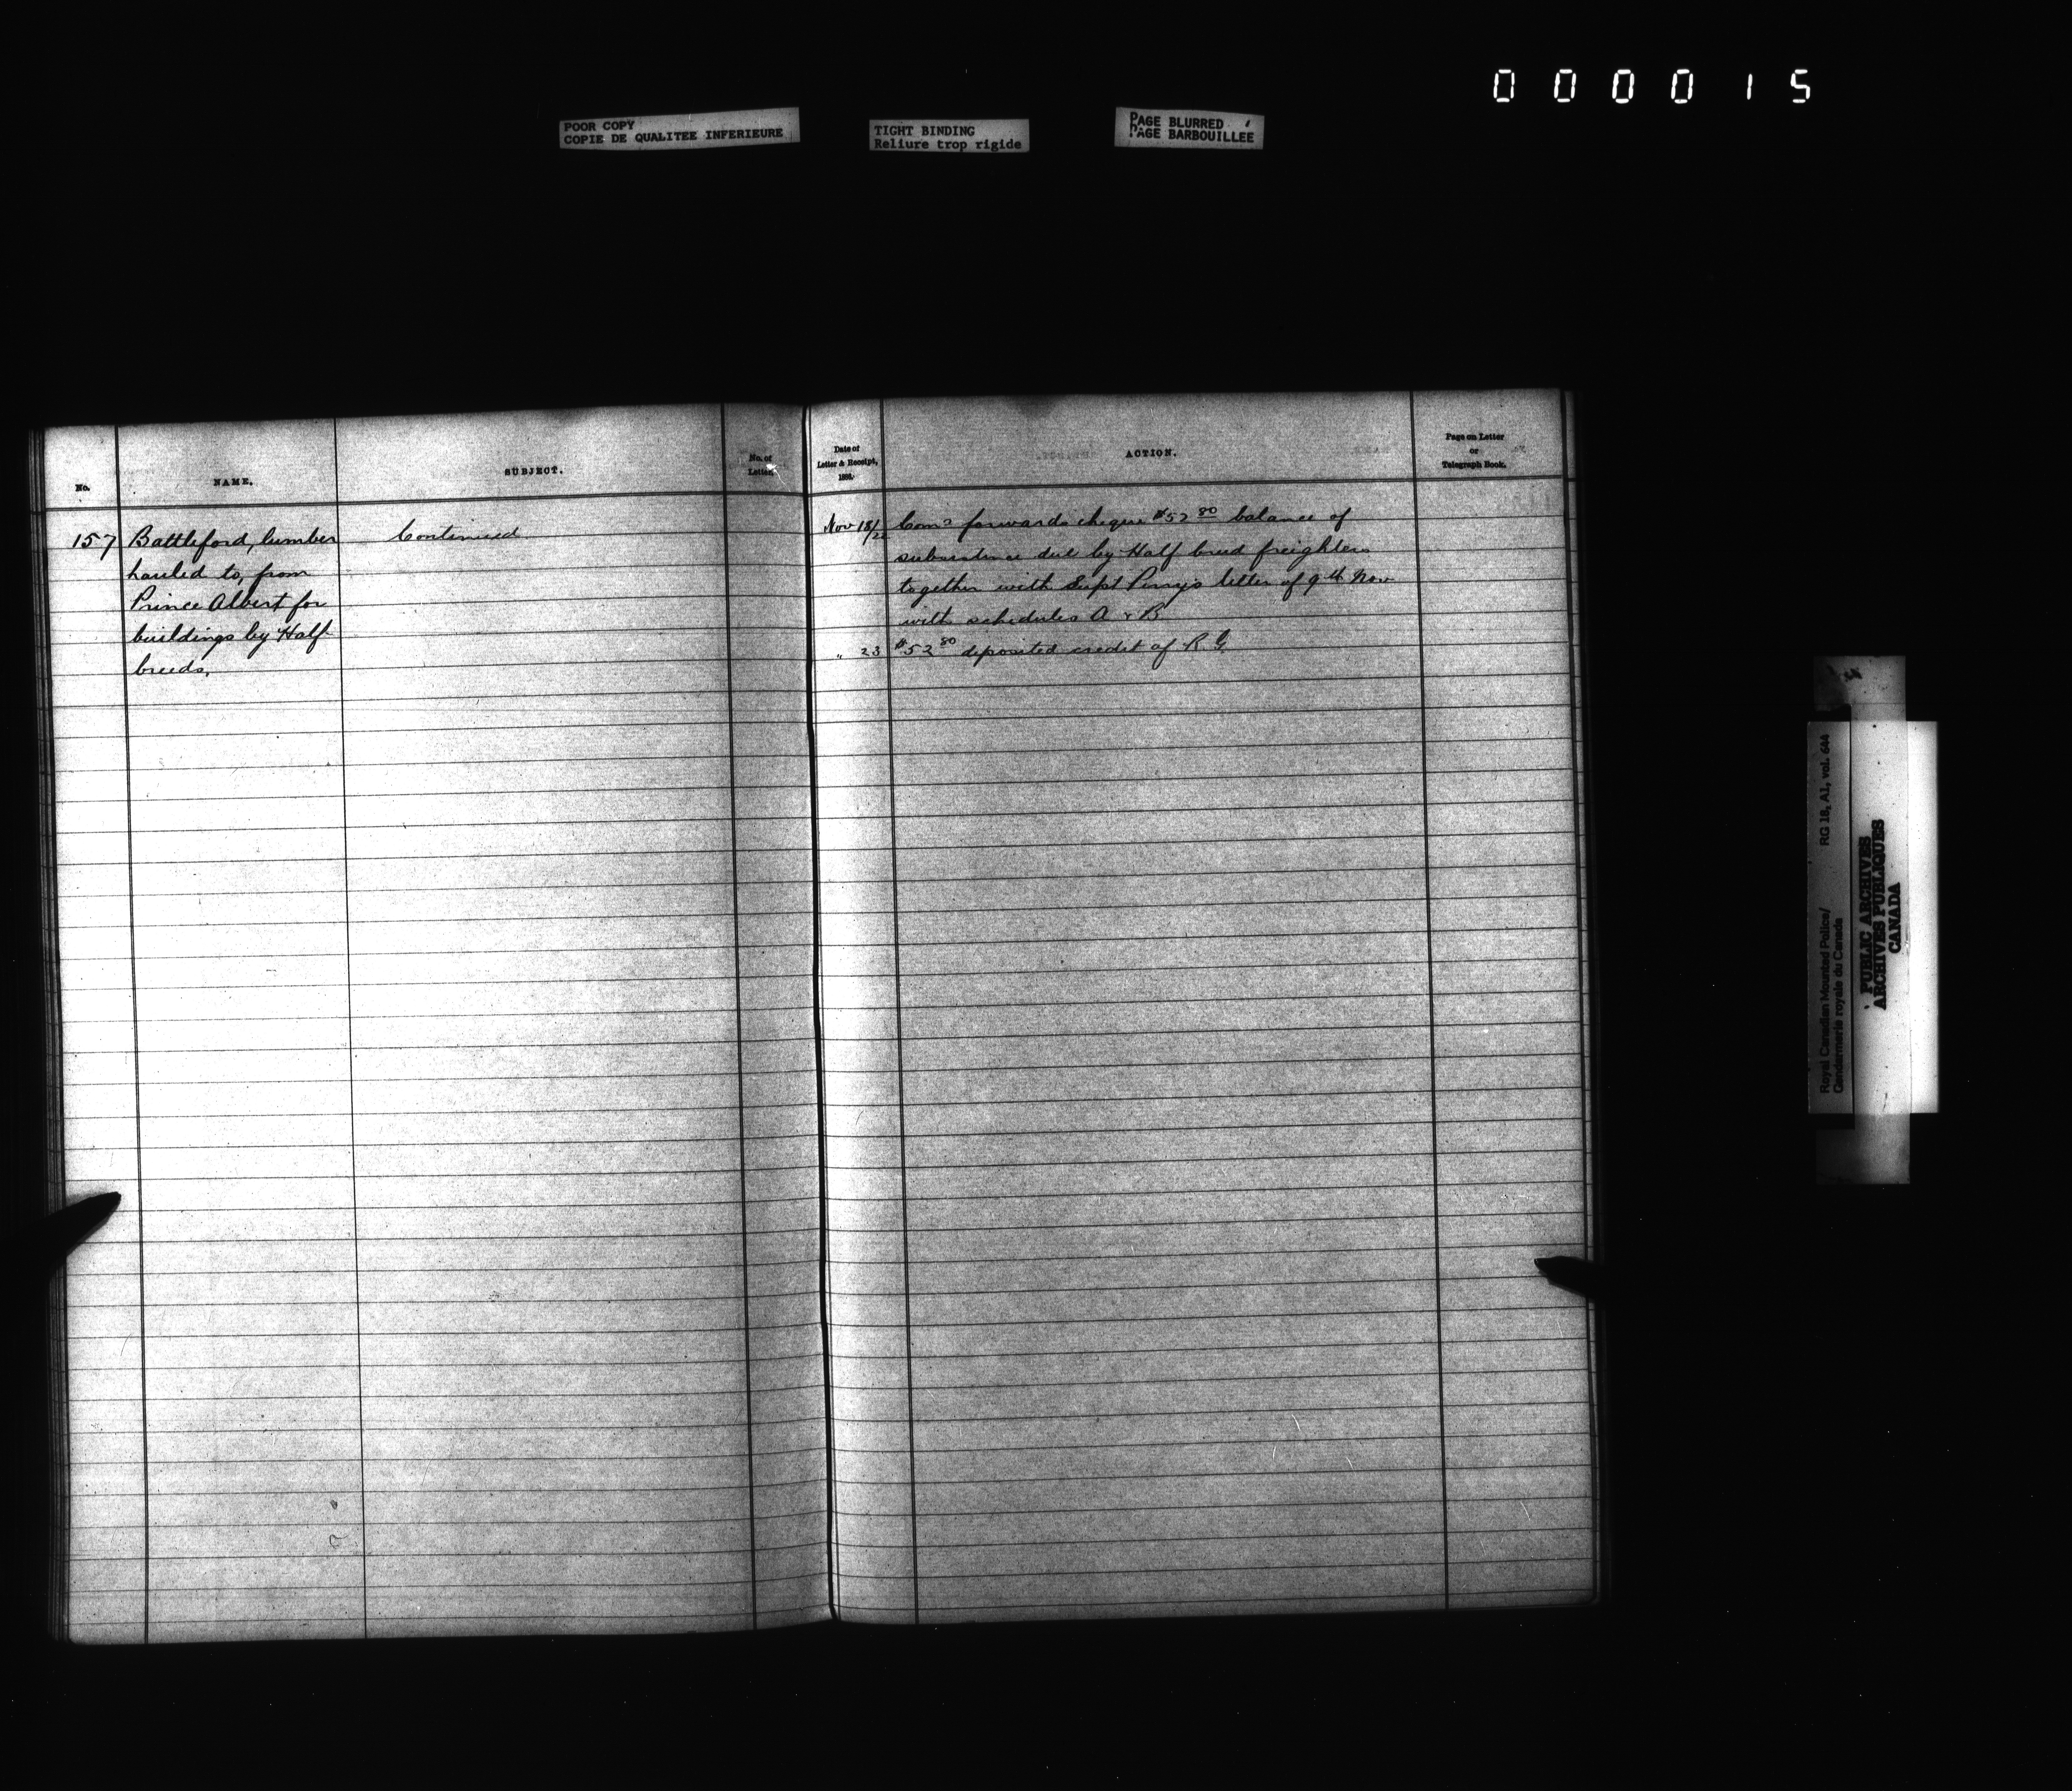 000015
POOR COPY
COPIE DE QUALITEE INFERIEURE
TIGHT BINDING
Reliure trop rigide
PAGE BLURRED
PAGE BARBOUILLEE
No.
NAME.
SUBJECT.
No. of
Letter.
Date of
Letter & Receipt,
188
ACTION.
Page on Letter
or
Telegraph Book.
157 Battleford, lumber
hauled to, from
Prince Albert for
buildings by Half-
breeds.
Continued
Nov 18/22 Comr forwards cheque $52 80 balance of
subsistence due by Half breed freighters
together with Supt Perry's letter of 9th Nov
with schedules A & B
" 23 $52 80 deposited credit of R. G
Royal Canadian Mounted Police/
Gendarmerie royale du Canada
RG 18, A1, vol. 644
PUBLIC ARCHIVES
ARCHIVES PUBLIQUES
CANADA